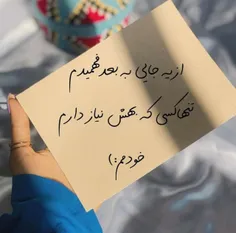 از یه جایی به بعد فهمیدم
تنها کسی که بهش نیاز دارم
خودمم :)